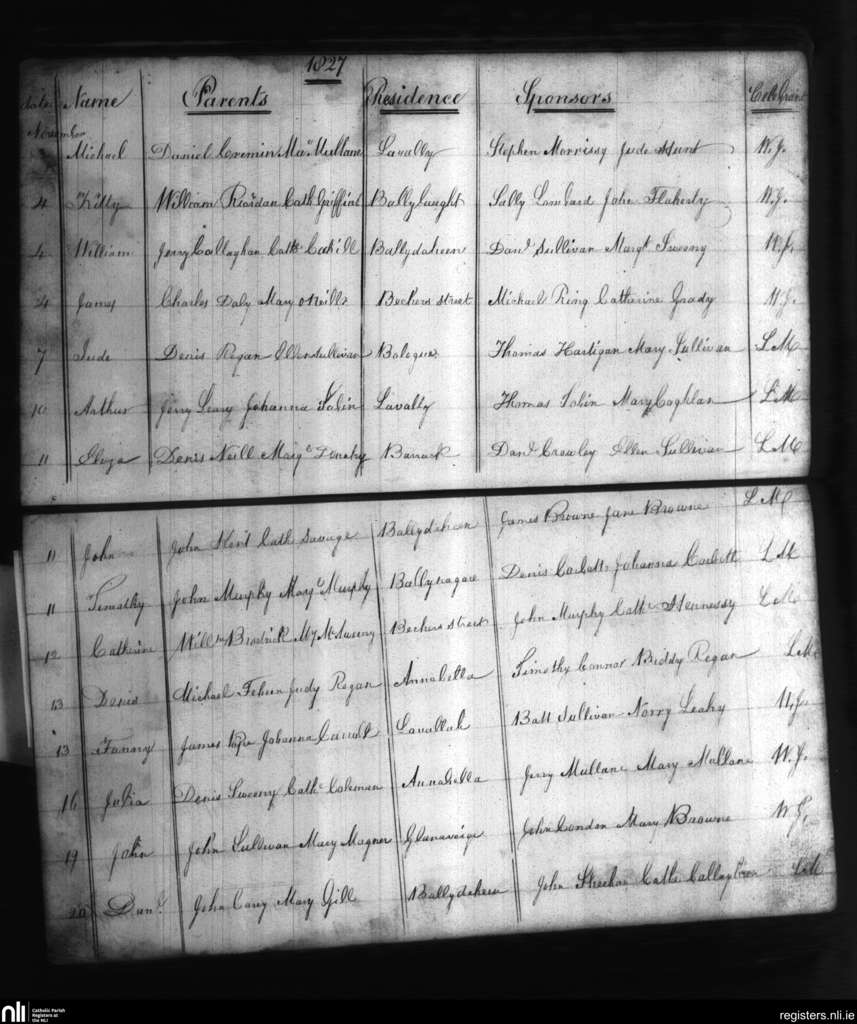 1827
date Name Parents Residence Sponsors Celebrant
November
Michael Daniel Cremin Ma. Mullane Lavally Stephen Morrissy Jude Hunt W.J.
4 Kitty William Riordan Cath Griffin Ballylought Sally Lombard John Flaherty W.J.
4 William Jerry Callaghan Cath Cahill Ballydaheen Danl Sullivan Margt Sweeny W.J.
4 James Charles Daly Mary oNeill Beckers street Michael Ring Catherine Grady W.J.
7 Jude Denis Regan Ellen Sullivan Thomas Hartigan Mary Sullivan L M
10 Arthur Jerry Leary Johanna Tobin Lavally Thomas Tobin Mary Coghlan L M
11 Eliza Denis Neill Barrack Danl Crowley Ellen Sullivan L M
11 John John Cath Savage Ballydaheen James Browne Jane Browne L M
11 Timothy John Murphy Mary Murphy Denis Corbett Johanna Corbett L M
12 Catherine Willm Beckers street John Murphy Cath Hennessy L M
13 Denis Michael Judy Regan Annabella Timothy Connor Biddy Regan L M
13 Fanny James Johanna Carroll Lavallah Batt Sullivan Norry Leahy W.J.
16 Julia Denis Sweeny Cath Coleman Annabella Jerry Mullane Mary Mullane W.J.
19 John John Sullivan Mary Magner John Condon Mary Browne W.J.
20 Danl John Carey Mary Gill Ballydaheen John Sheehan Cath Callaghan L M
nli Catholic Parish
Registers at
the NLI
registers.nli.ie